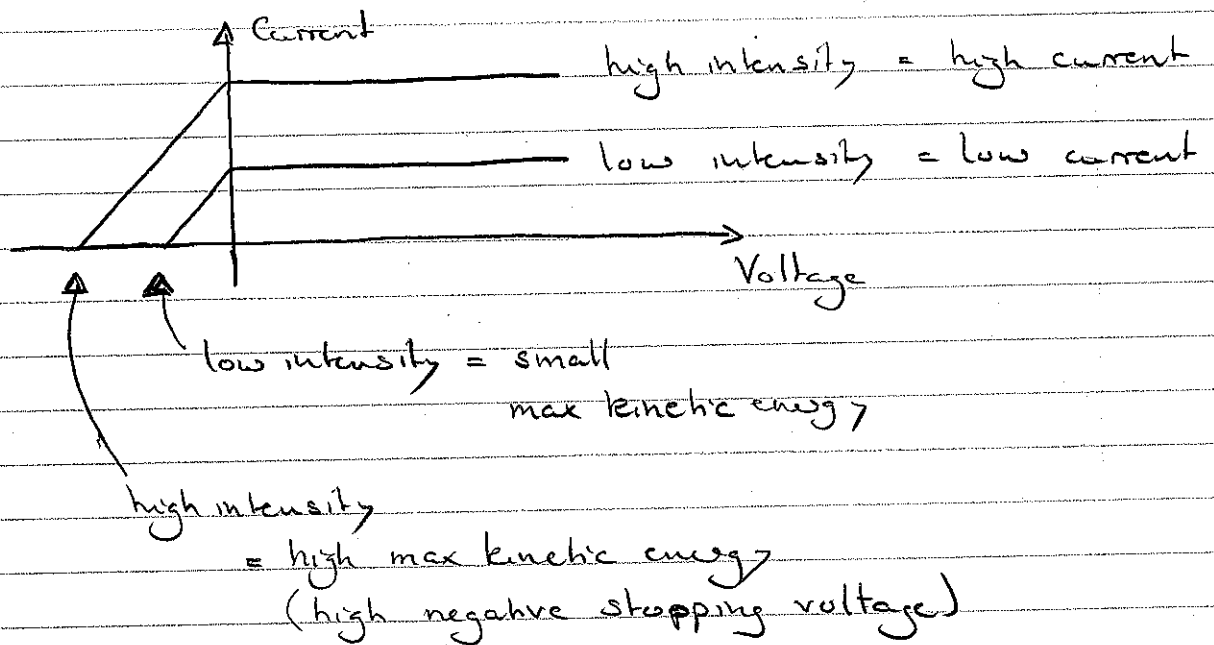 Current
high intensity = high current
low intensity = low current
Voltage
low intensity = small
max kinetic energy
high intensity
= high max kinetic energy
(high negative stopping voltage)